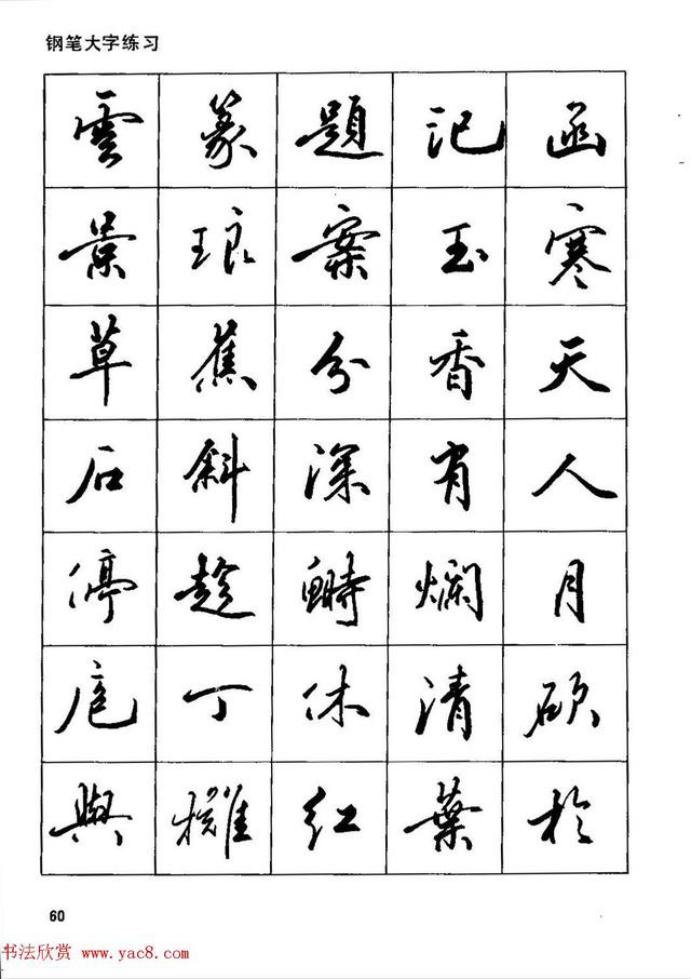 钢笔大字练习
雲篆題记函
景琅案玉寒
草蕉分香天
石斜深有人
停趁鰣爛月
扈丁休清硕
與櫂红葉於
60
书法欣赏 www.yac8.com